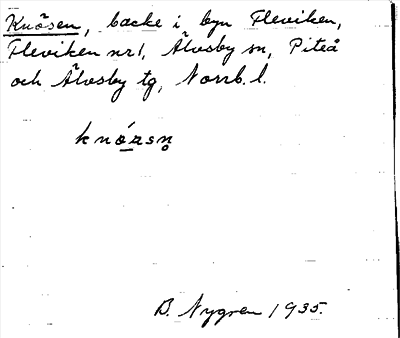 Knösen, backe i byn Fleviken,
Fleviken nr 1, Älvsby sn, Piteå
och Älvsby tg, Norrb. l.
knörsn̥
B. Nygren 1935.